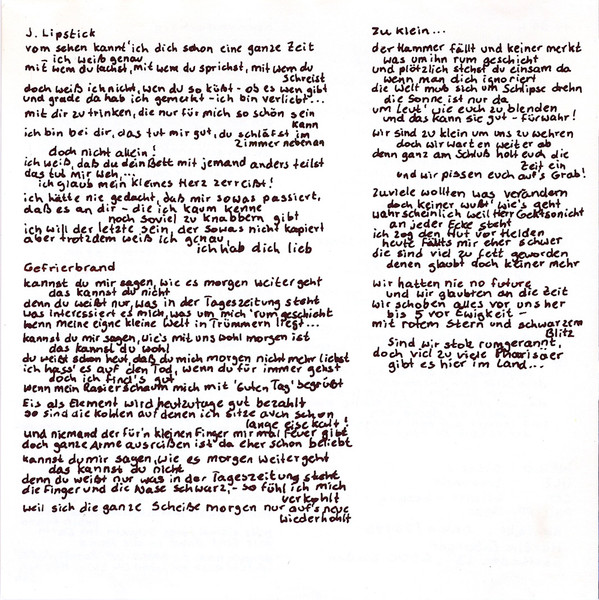 J. Lipstick
vom sehen kannt' ich dich schon eine ganze Zeit
- ich weiß genau
mit wem du lachst, mit wem du sprichst, mit wem du
schreist
doch weiß ich nicht, wen du so küßt - ob es wen gibt
und grade da hab ich gemerkt - ich bin verliebt...
mit dir zu trinken, die nur für mich so schön sein
kann
ich bin bei dir, das tut mir gut, du schläfst im
Zimmer nebenan
doch nicht allein!
ich weiß, daß du dein Bett mit jemand anders teilst
das tut mir weh,...
ich glaub mein kleines Herz zerreißt!
ich hätte nie gedacht, daß mir sowas passiert,
daß es an dir - die ich kaum kenne
noch soviel zu knabbern gibt
ich will der letzte sein, der sowas nicht kapiert
aber trotzdem weiß ich genau,
ich hab dich lieb
Gefrierbrand
kannst du mir sagen, wie es morgen weitergeht
das kannst du nicht
denn du weißt nur, was in der Tageszeitung steht
was interessiert es mich, was um mich 'rum geschicht
wenn meine eigne kleine Welt in Trümmern liegt...
kannst du mir sagen, wie's mit uns wohl morgen ist
das kannst du wohl
du weißt schon heut, daß du mich morgen nicht mehr liebst
ich hass' es auf den Tod, wenn du für immer gehst
doch ich find's gut
wenn mein Rasierschaum mich mit 'Guten Tag' begrüßt
Eis als Element wird heutzutage gut bezahlt
so sind die Kohlen auf denen ich sitze auch schon
lange eiskalt!
und niemand der für'n kleinen Finger mir mal Feuer gibt
doch ganze Arme ausreißen ist da eher schon beliebt
kannst du mir sagen, wie es morgen weitergeht
das kannst du nicht
denn du weißt nur was in der Tageszeitung steht
die Finger und die Nase schwarz, - so fühl ich mich
verkohlt
weil sich die ganze Scheiße morgen nur auf's neue
wiederhohlt
Zu klein...
der Hammer fällt und keiner merkt
was um ihn rum geschicht
und plötzlich stehst du einsam da
wenn man dich ignoriert
die Welt muß sich um Schlipse drehn
die Sonne ist nur da
um Leut' wie euch zu blenden
und das kann sie gut - fürwahr!
wir sind zu klein um uns zu wehren
doch wir warten weiter ab
denn ganz am Schluß holt euch die
Zeit ein
und wir pissen euch auf's Grab!
Zuviele wollten was verändern
doch keiner wußt' wie's geht
wahrscheinlich weil Herr Gehtsonicht
an jeder Ecke steht
ich zog den Hut vor Helden
heute fällts mir eher schwer
die sind viel zu fett geworden
denen glaubt doch keiner mehr
wir hatten nie no future
und wir glaubten an die Zeit
wir schoben alles vor uns her
bis 5 vor Ewigkeit -
mit rotem Stern und schwarzem
Blitz
sind wir stolz rumgerannt,
doch viel zu viele Pharisäer
gibt es hier im Land...